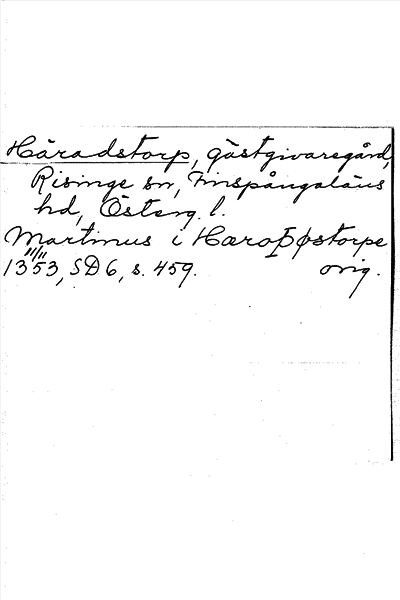 Häradstorp, gästgivaregård,
Risinge sn, Finspångaläns
hd, Österg. l.
Martinus i HæroÞþstorpe
11/11
1353, SD 6, s. 459. orig.